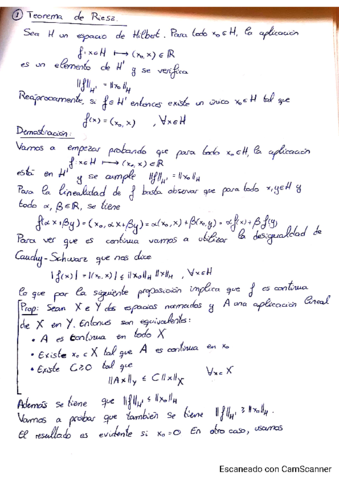 ① Teorema de Riesz.
Sea H un espacio de Hilbert. Para todo x₀∈H, la aplicación
f: x∈H ⟼ (x₀, x) ∈ ℝ
es un elemento de H' y se verifica
‖f‖_H' = ‖x₀‖_H
Recíprocamente, si f∈H' entonces existe un único x₀∈H tal que
f(x) = (x₀, x) , ∀x∈H
Demostración:
Vamos a empezar probando que para todo x₀∈H, la aplicación
f: x∈H ⟼ (x₀, x) ∈ ℝ
está en H' y se cumple ‖f‖_H' = ‖x₀‖_H
Para la linealidad de f basta observar que para todo x,y∈H y
todo α, β∈ℝ, se tiene
f(αx+βy) = (x₀, αx+βy) = α(x₀, x) + β(x₀, y) = αf(x) + βf(y)
Para ver que es continua vamos a utilizar la desigualdad de
Cauchy-Schwarz que nos dice
|f(x)| = |(x₀, x)| ≤ ‖x₀‖_H ‖x‖_H , ∀x∈H
lo que por la siguiente proposición implica que f es continua
Prop: Sean X e Y dos espacios normados y A una aplicación lineal
de X en Y. Entonces son equivalentes:
• A es continua en todo X
• Existe x₀∈X tal que A es continua en x₀
• Existe C≥0 tal que
‖Ax‖_Y ≤ C‖x‖_X ∀x∈X
Además se tiene que ‖f‖_H' ≤ ‖x₀‖_H
Vamos a probar que también se tiene ‖f‖_H' ≥ ‖x₀‖_H.
El resultado es evidente si x₀=0 En otro caso, usamos
Escaneado con CamScanner